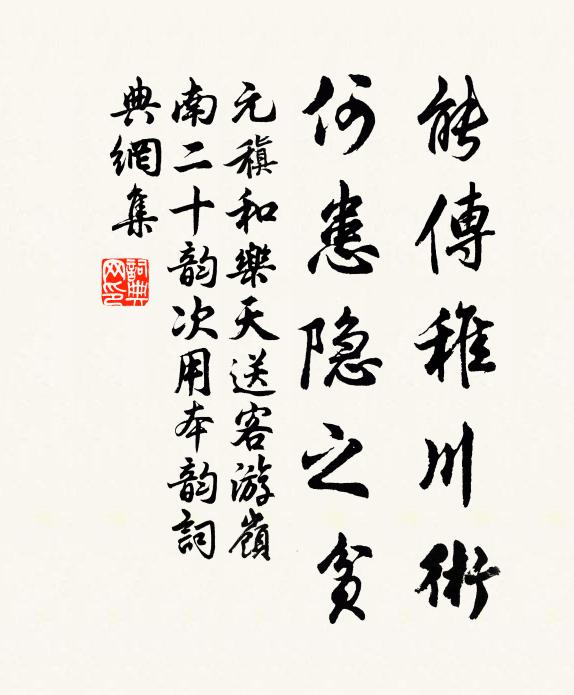 能傳稚川術
何患隐之貧
元稹和樂天送客游嶺
南二十韵次用本韵詞
典網集
詞典
网印